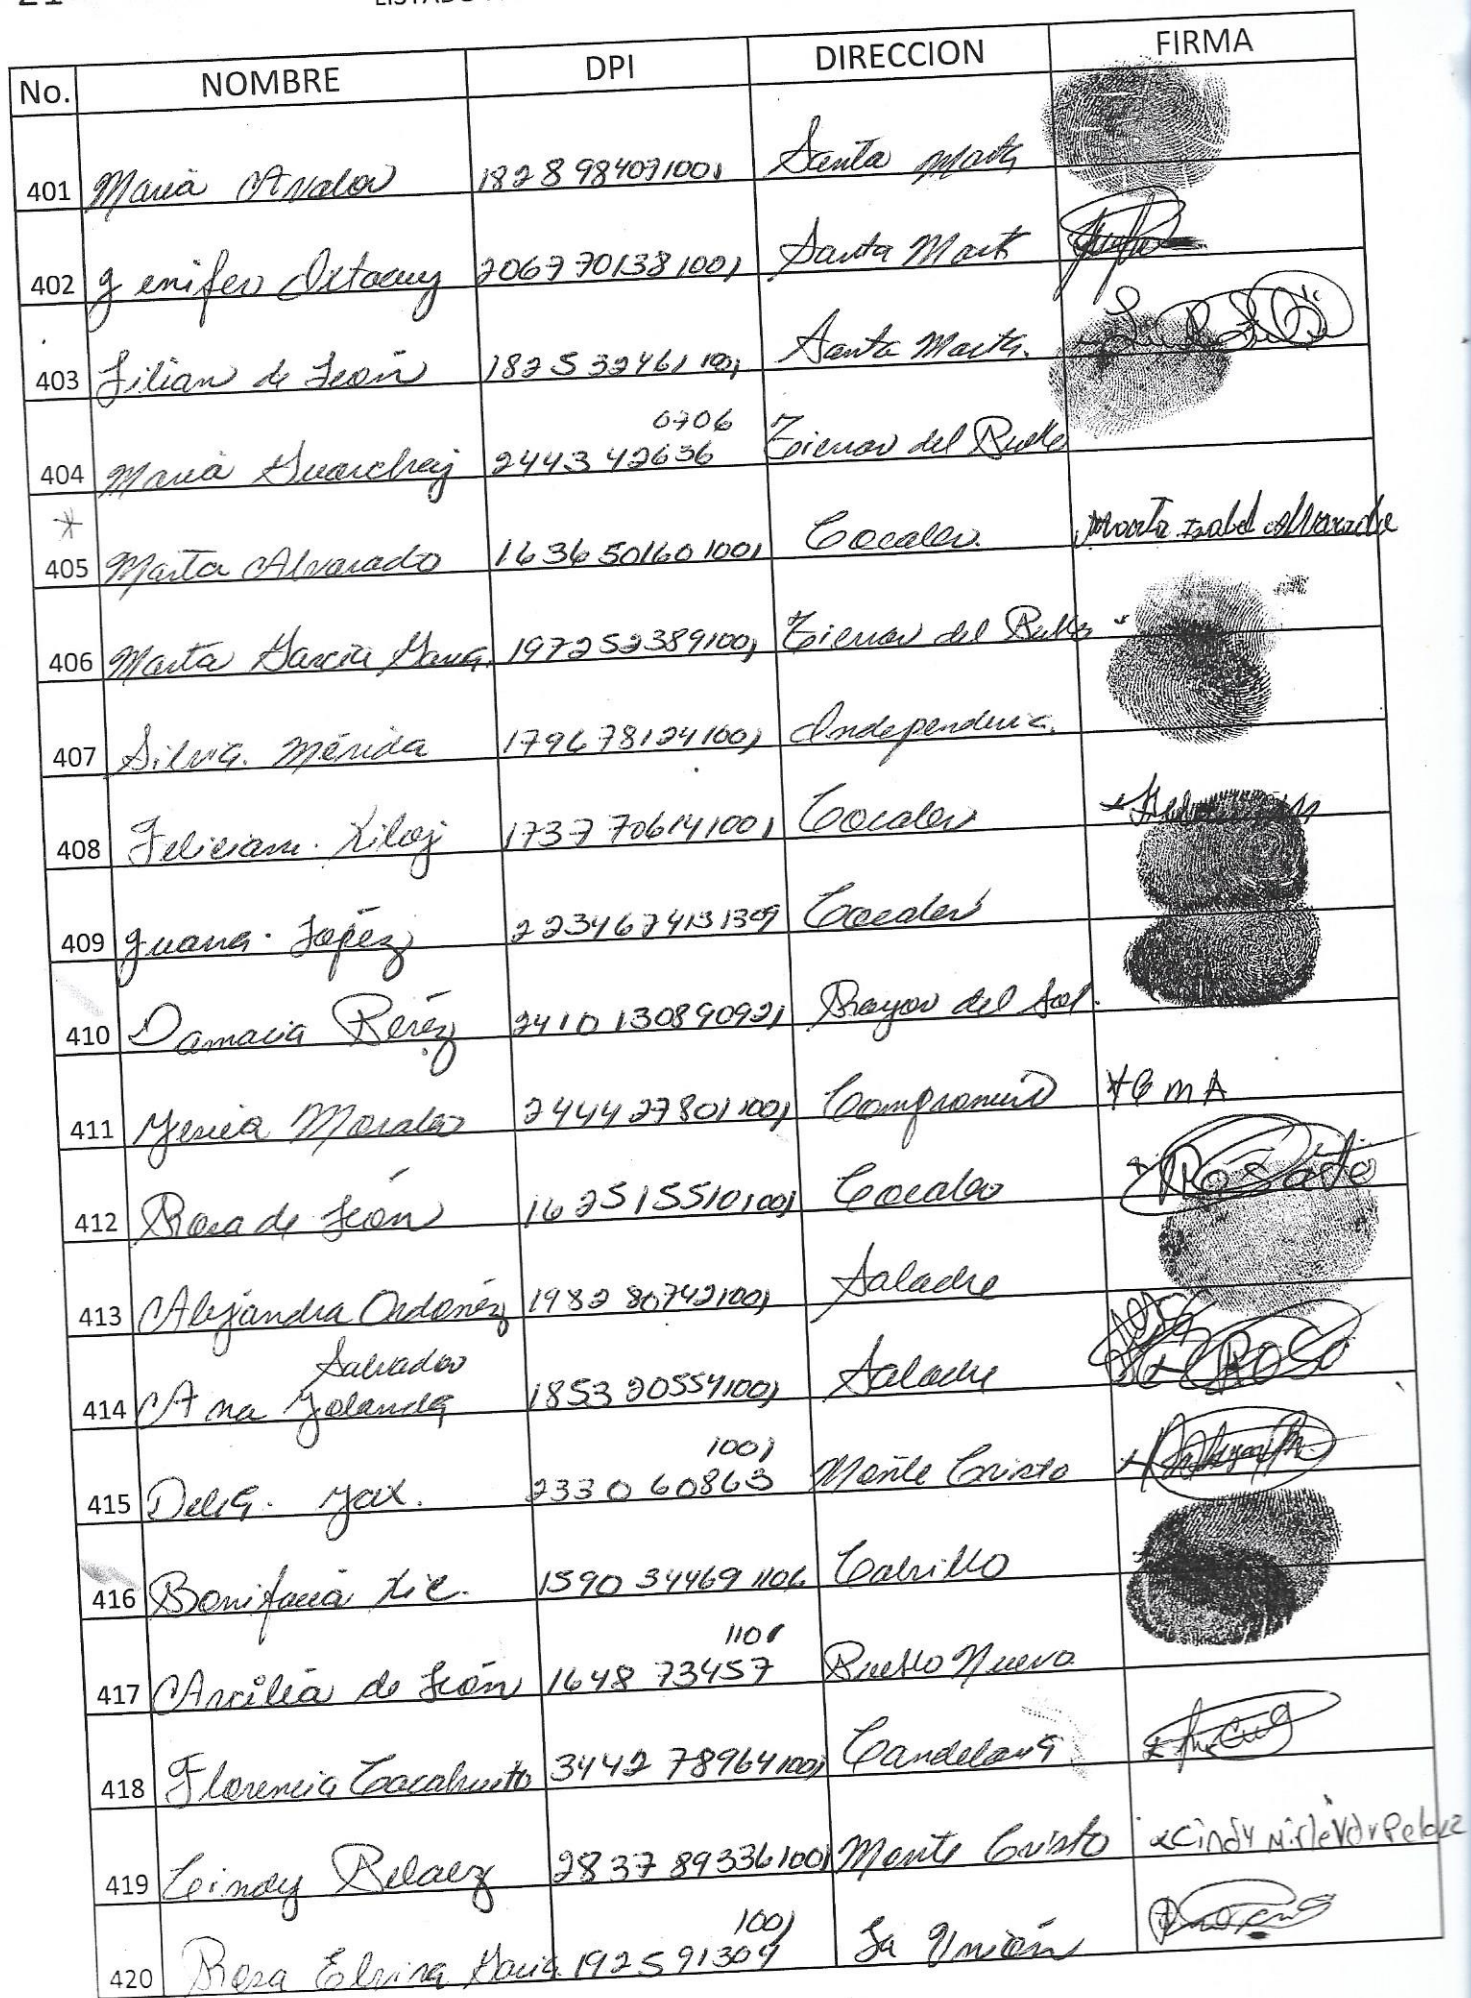 21
No. NOMBRE DPI DIRECCION FIRMA
401 Maria Avalos 1828 98407 1001 Santa Marta
402 Jenifer 2067 70138 1001 Santa Mart
403 Lilian de León 1825 32461 1001 Santa Marta.
0706
404 Maria Guarchaj 2443 42636 Tierras del Pueblo
*
405 Marta Alvarado 1636 50160 1001 Cocales. Marta Isabel Alvarado
406 Marta Garcia 1972 52389 1001 Tierras del Pueblo
407 Silvia. Mérida 1796 78124 1001 Independencia.
408 Feliciana. Xiloj 1737 70614 1001 Cocales
409 Juana. Lopéz 2234 67413 1309 Cocales
410 Damacia Peréz 2410 13089 0921 Rayos del Sol.
411 Yesica Morales 2444 27801 1001 Compromiso
412 Rosa de León 1625 15510 1001 Cocales
413 Alejandra Ordonéz 1982 80742 1001 Saladre
Salvador
414 Ana Yolanda 1853 20554 1001 Saladre
1001
415 Delia. Yax. 2330 60863 Monte Cristo
416 Bonifacia Xic. 1590 34469 1106 Cabrillo
1101
417 Arcilia de León 1648 73457 Pueblo Nuevo
418 Florencia 3442 78964 1001 Candelaria
419 Cindy Pelaez 2837 89336 1001 Monte Cristo
1001
420 Rosa Elvira Garcia 1925 91309 La Unión